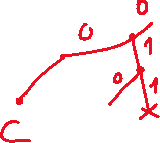 0
0
1
0
1
C